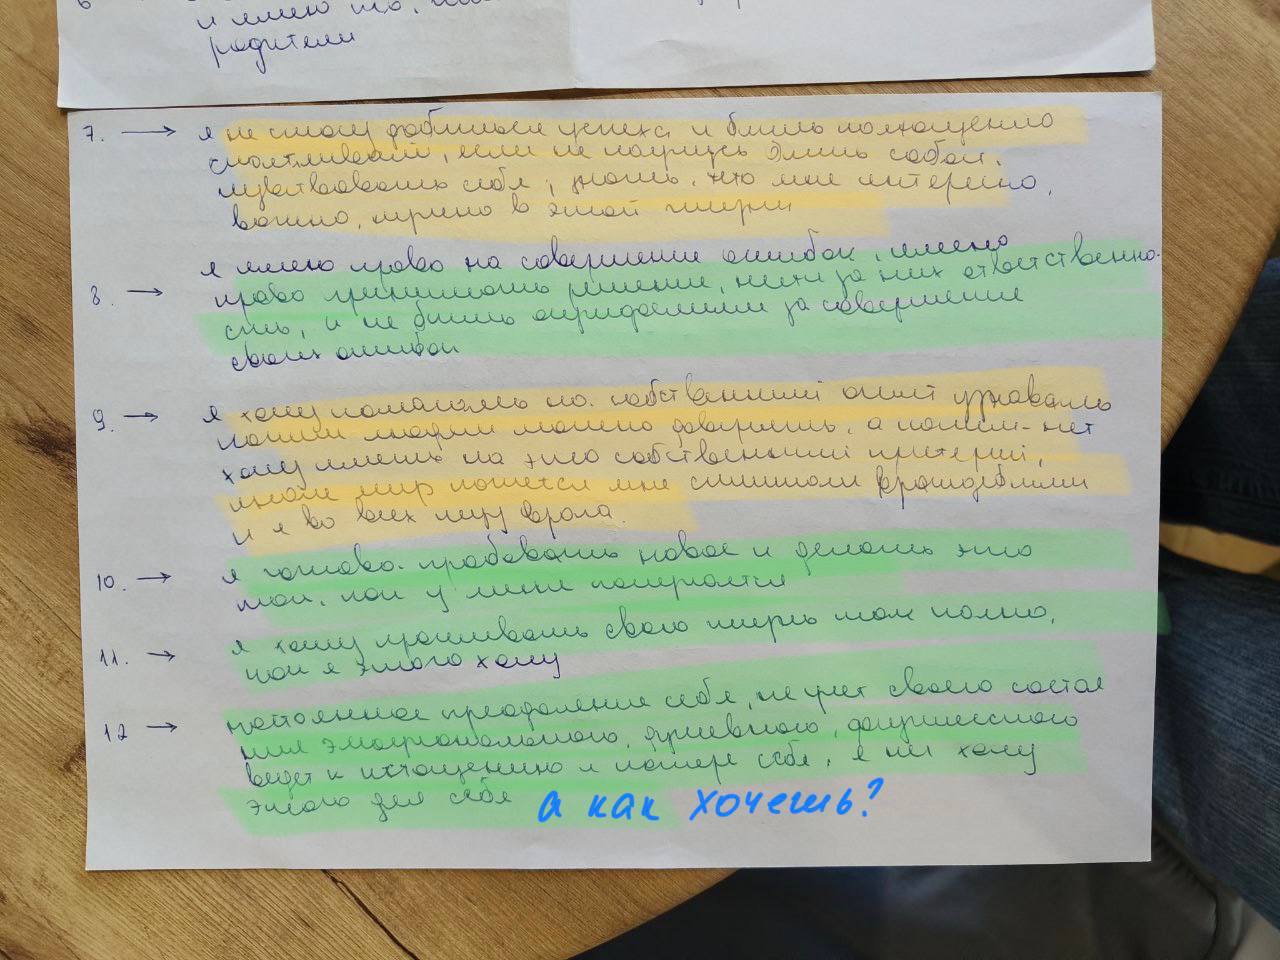 6
и имею то,
родители
7. → я не смогу добиться успеха и быть полноценно
счастливой, если не научусь быть собой,
чувствовать себя, знать, что мне интересно,
важно, нужно в этой жизни
я имею право на совершение ошибок, имено
8. → право принимать решение, нести за них ответственно-
сть, и не быть осуждаемым за совершение
своих ошибок
9. → я хочу понимать на собственный опыт узнавать
каким людям можно доверять, а каким - нет
хочу иметь на это собственный критерий,
иначе мир кажется мне слишком враждебным
и я во всех ищу врага.
10. → я готова пробовать новое и делать это
так, как у меня получается
11. → я хочу проживать свою жизнь так полно,
как я этого хочу
12 → постоянное преодоление себя, не учет своего состоя
ния эмоционального, душевного, физического
ведет к истощению и потере себя, я не хочу
этого для себя а как хочешь?